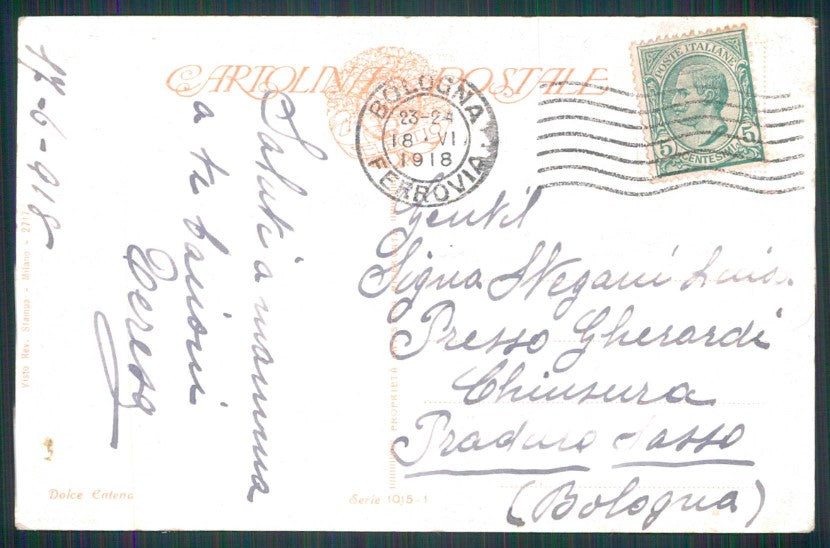 CARTOLINA POSTALE
BOLOGNA
23-24
18 VI
1918
FERROVIA
POSTE ITALIANE
5 5
CENTESIMI
17-6-918
Saluti a mamma
a te bacioni
Teresa
Gentil
Signa Luisa
Presso Gherardi
Chiusura
Praduro Sasso
(Bologna)
Visto Rev. Stampa - Milano - 2717
Dolce Entena
Serie 1015-1